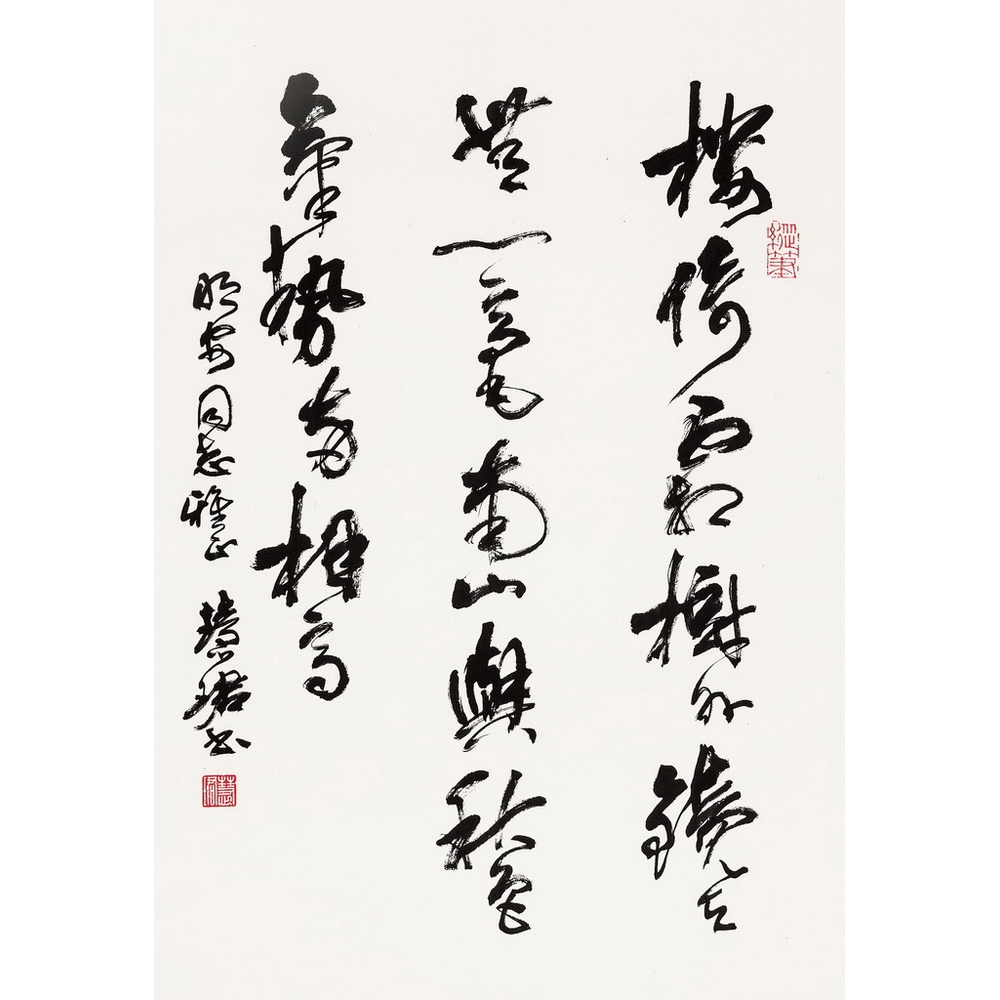 樓倚霜樹外鏡天
無一毫南山與秋色
氣勢兩相高
明安同志雅正 慧珺書